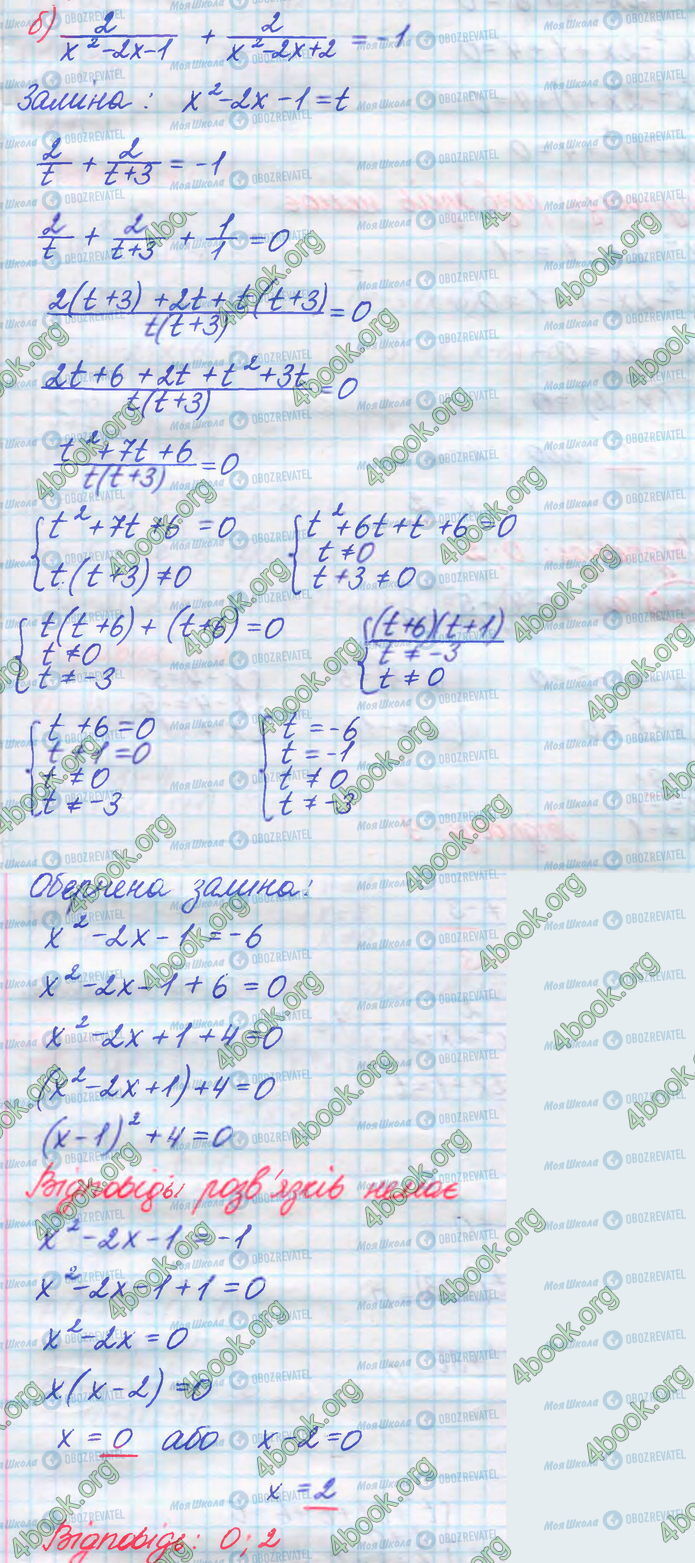 б) 2/(x²-2x-1) + 2/(x²-2x+2) = -1
Заміна: x²-2x-1=t
2/t + 2/(t+3) = -1
2/t + 2/(t+3) + 1/1 = 0
(2(t+3)+2t+t(t+3))/(t(t+3)) = 0
(2t+6+2t+t²+3t)/(t(t+3)) = 0
(t²+7t+6)/(t(t+3)) = 0
{ t²+7t+6=0 { t²+6t+t+6=0
t≠0
t·(t+3)≠0 t+3≠0
{ t(t+6)+(t+6)=0 { (t+6)(t+1)
t≠0 t≠-3
t≠-3 t≠0
{ t+6=0 { t=-6
t+1=0 t=-1
t≠0 t≠0
t≠-3 t≠-3
Обернена заміна:
x²-2x-1=-6
x²-2x-1+6=0
x²-2x+1+4=0
(x²-2x+1)+4=0
(x-1)²+4=0
Відповідь: розв'язків немає
x²-2x-1=-1
x²-2x-1+1=0
x²-2x=0
x(x-2)=0
x=0 або x-2=0
x=2
Відповідь: 0; 2
МояШкола OBOZREVATEL
4book.org